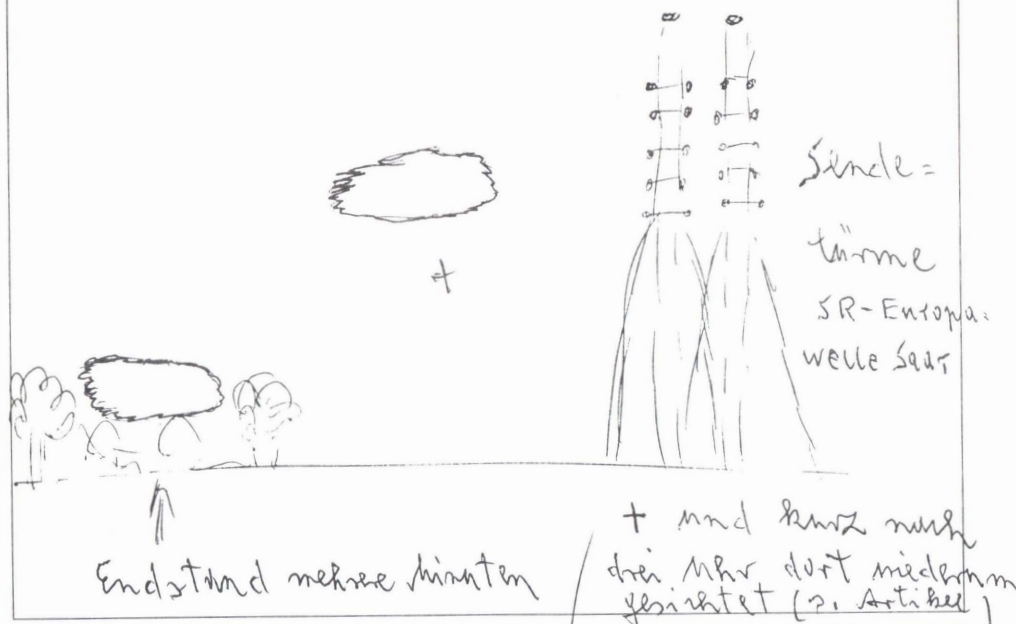 Sende=
türme
SR-Europa=
welle Saar
+
Endstand mehrere Minuten
+ und kurz nach
drei Uhr dort wiederum
gesichtet (s. Artikel)